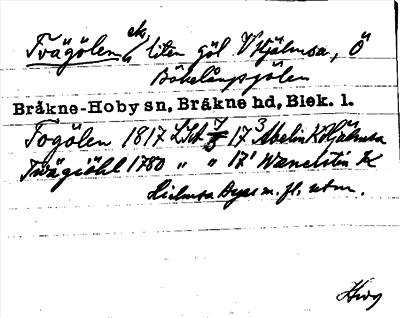 Tvägölen ek, liten göl V Hjälmsa, Ö
Bökelångsjölen
Bråkne-Hoby sn, Bråkne hd, Blek. l.
Togölen 1817 LSA 7/8 17³ Abelin K Hjälmsa
Tvägiöhl 1780 " " 17¹ Wanesten K
Hielmsa Byes m. fl. utm.